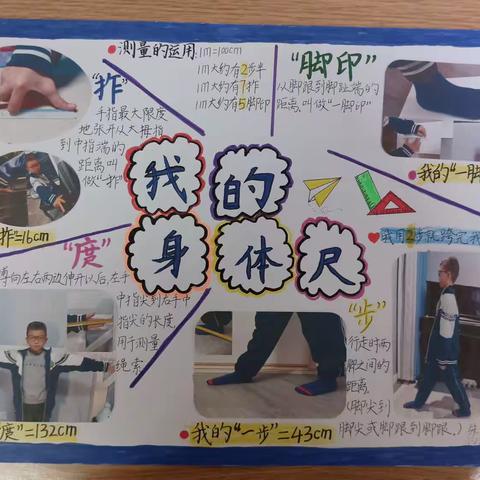 测量的运用
1m=100cm
1m大约有2步半
1m大约有7拃
1m大约有5脚印
"拃"
手指最大限度
地张开从大拇指
到中指端的
距离叫
做"一拃"
拃=16cm
"脚印"
从脚跟到脚趾端的
距离,叫做"一脚印"
我的"一脚
我的
身体尺
我用2步就跨完
"度"
臂向左右两边伸开以后,左手
中指尖到右手中
指尖的长度,
用于测量
绳索
度"=132cm
我的"一步"=43cm
"步"
(行走时两
脚之间的
距离,
(脚尖到
脚尖或脚跟到脚跟.)